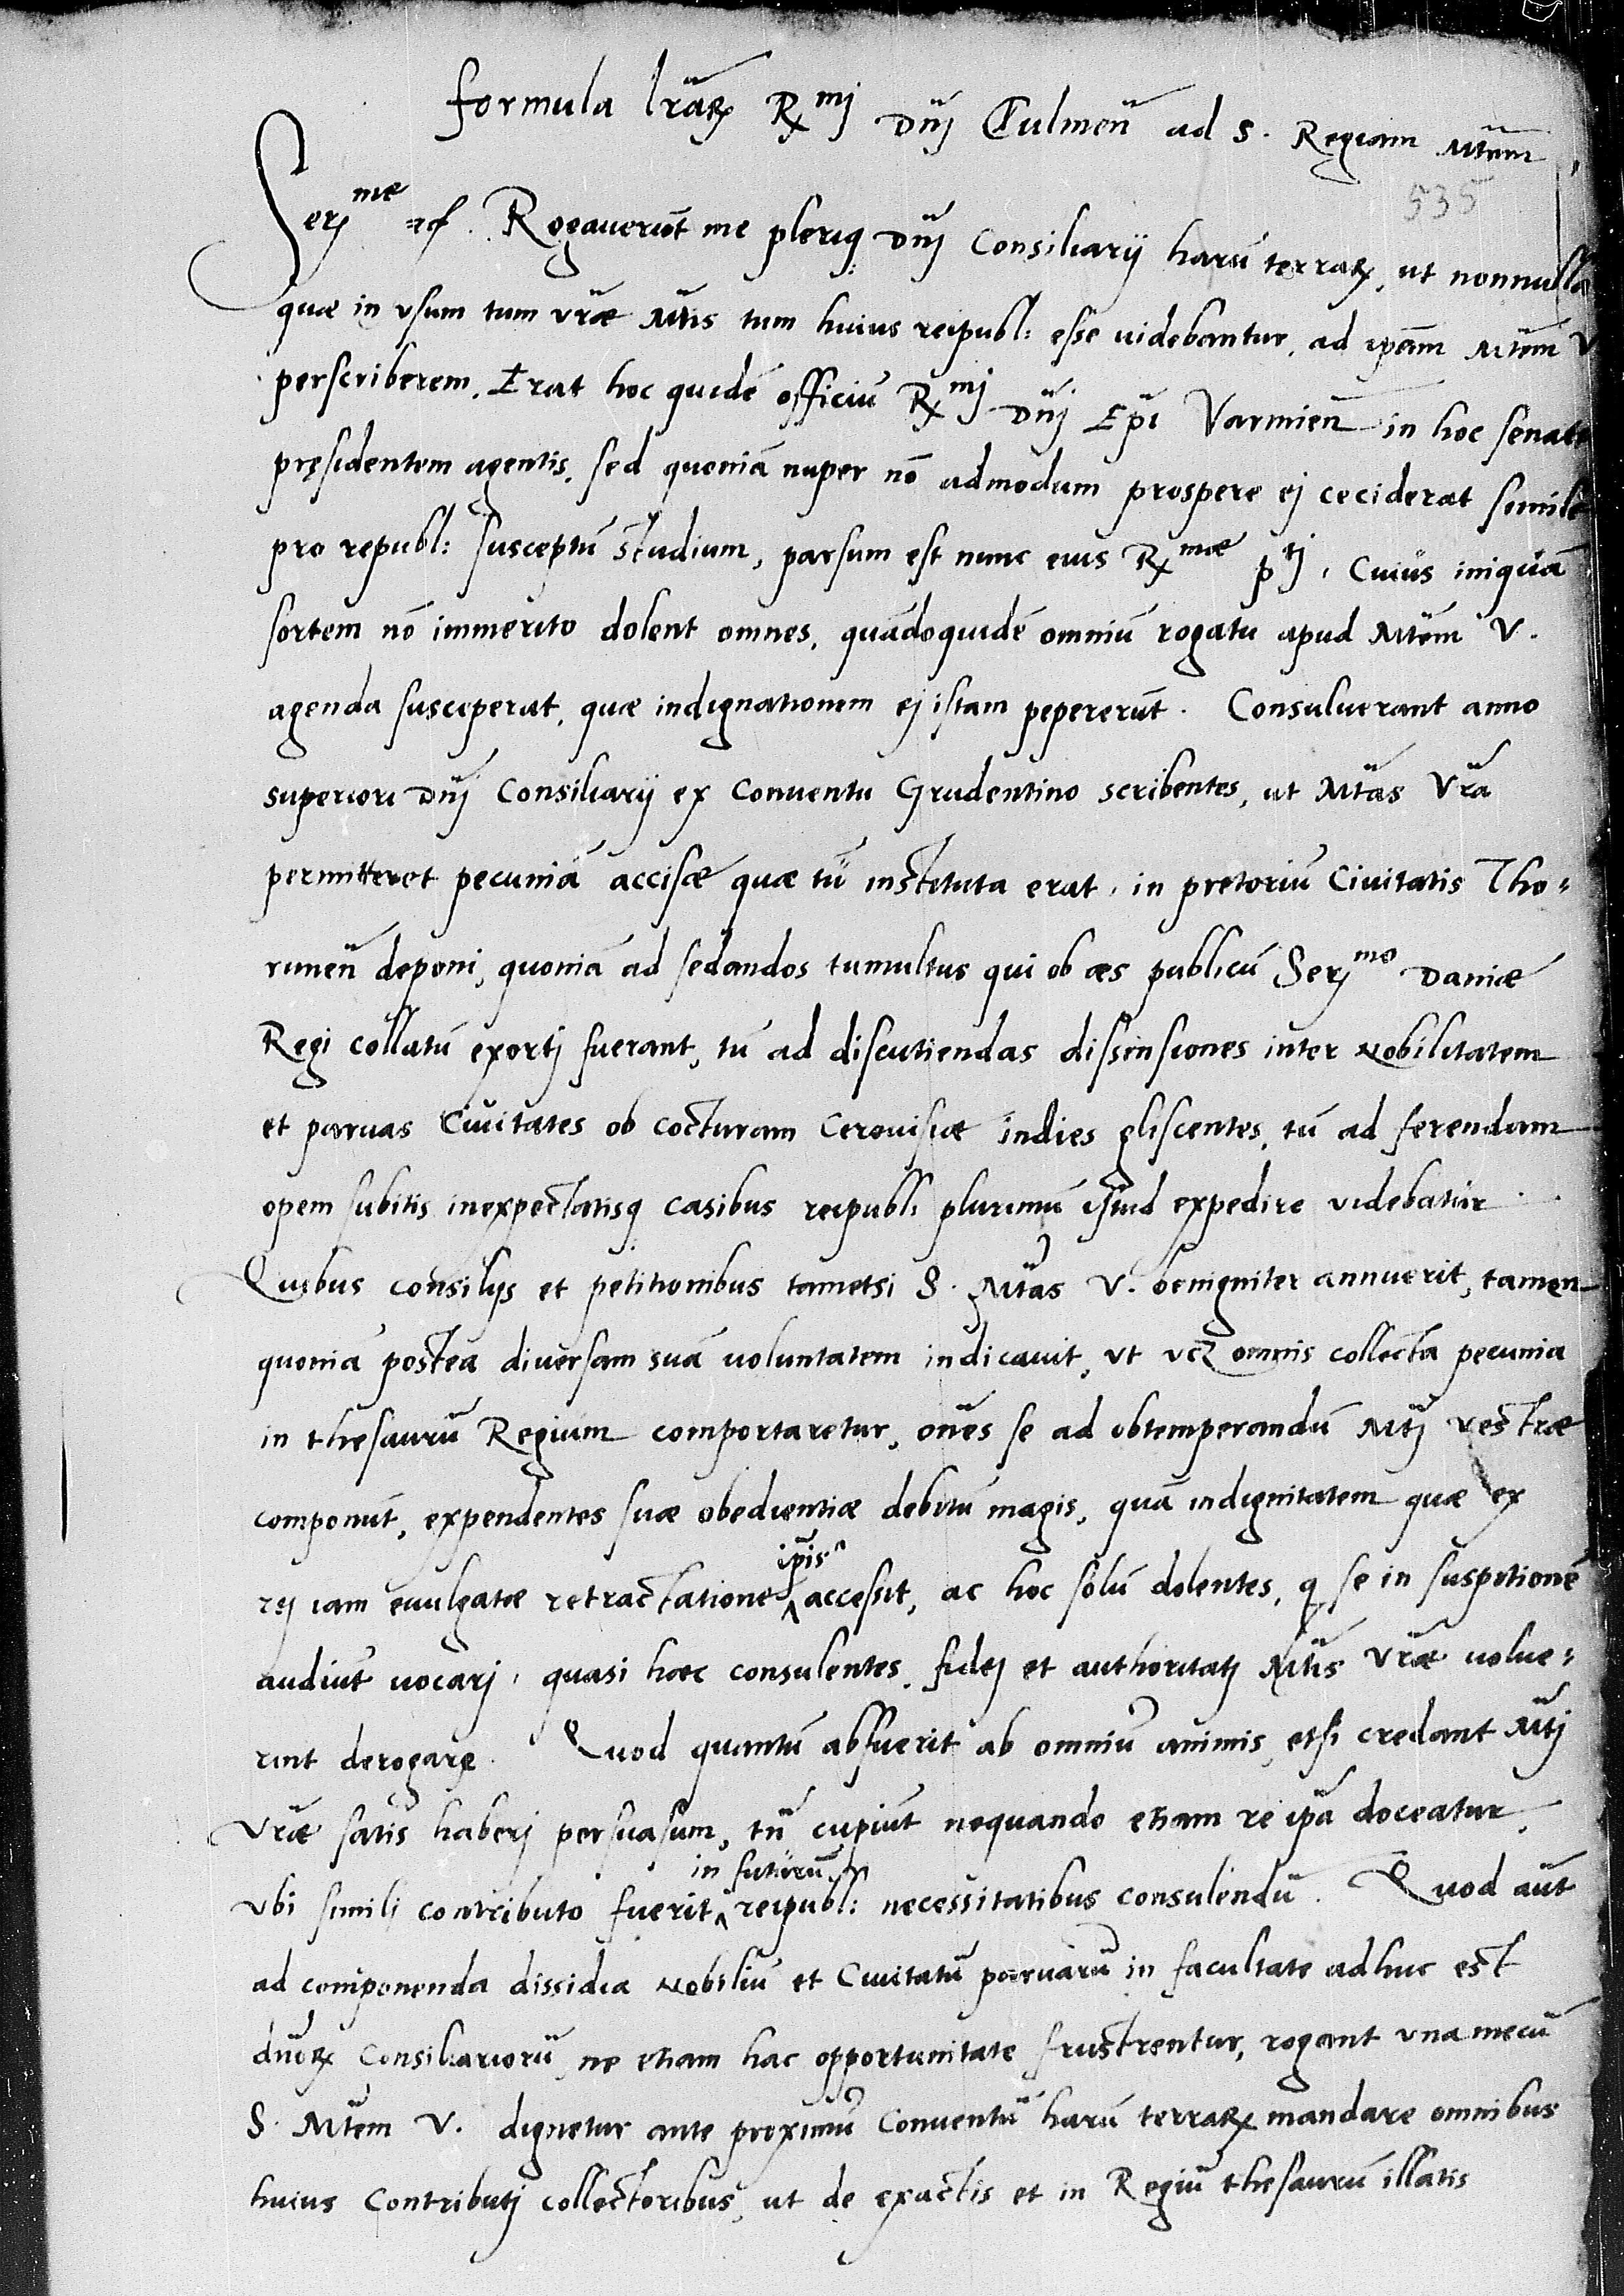 formula lr̄aꝝ R^mj Dn̄j Culmen̄ ad S. Regiam Mt̄em
535
Serj^me etc. Rogaverūt me pleriq Dn̄j Consiliarij harū terraꝝ, ut nonnulla
quæ in vsum tum vr̄æ Mt̄is tum huius reipubl: esse uidebantur, ad ipsam Mt̄em V
perscriberem. Erat hoc quidē officiū R^mj Dn̄j Ep̄i Varmien̄ in hoc senatu
pręsidentem agentis, sed quoniā nuper nō admodum prospere ej ceciderat simile
pro republ: susceptū studium, parsum est nunc eius R^mæ p^tj, Cuius iniquā
sortem nō immerito dolent omnes, quādoquidē omniū rogatu apud Mt̄em V.
agenda susceperat, quæ indignationem ej istam pepererūt. Consuluerant anno
superiori Dn̄j Consiliarij ex Conuentu Grudentino scribentes, ut Mt̄as Vr̄a
permitteret pecuniā accisæ quæ tū instituta erat, in pretoriū Ciuitatis Tho=
runen̄ deponi, quoniā ad sedandos tumultus qui ob æs publicū Serj^mo Daniæ
Regi collatū exortj fuerant, tū ad discutiendas dissensiones inter Nobilitatem
et paruas Ciuitates ob cocturam Cerevisiæ indies gliscentes, tū ad ferendam
opem subitis inexpectatisq casibus reipubl: plurimū istud expedire videbatur.
Quibus consilijs et petitionibus tametsi S. Mt̄as V. benigniter annuerit, tamen
quoniā postea diuersam suā uoluntatem indicauit, vt vcꝫ omnis collecta pecunia
in thesaurū Regium comportaretur, on̄es se ad obtemperandū Mt̄j vestræ
componūt, expendentes suæ obedientiæ debitū magis, quā indignitatem quæ ex
rej iam euulgatæ retractatione ip̄is accessit, ac hoc solū dolentes, q se in suspitionē
audiūt uocarj, quasi hæc consulentes, fidej et authoritatj Mt̄is Vr̄æ uolue=
rint derogare. Quod quantū absuerit ab omniū animis, etsi credant Mt̄j
Vr̄æ satis haberj persuasum, tn̄ cupiūt nequando etiam re ip̄a doceatur,
vbi similj contributo fuerit in futurū reipubl: necessitatibus consulendū. Quod aūt
ad componenda dissidia Nobiliū et Ciuitatū paruarū in facultate adhuc est
dn̄oꝝ Consiliariorū, ne etiam hac opportunitate frustrentur, rogant vna mecū
S. Mt̄em V. dignetur ante proximū Conuentū harū terraꝝ mandare omnibus
huius Contributj collectoribus, ut de exactis et in Regiū thesaurū illatis